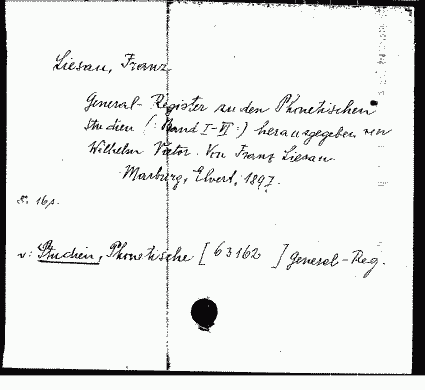 Liesau, Franz
General-Register zu den Phonetischen
Studien (: Band I-VI :) herausgegeben von
Wilhelm Vietor. Von Franz Liesau.
Marburg, Elwert, 1897.
8. 16 s.
v: Studien, Phonetische [ 63162 ] General-Reg.